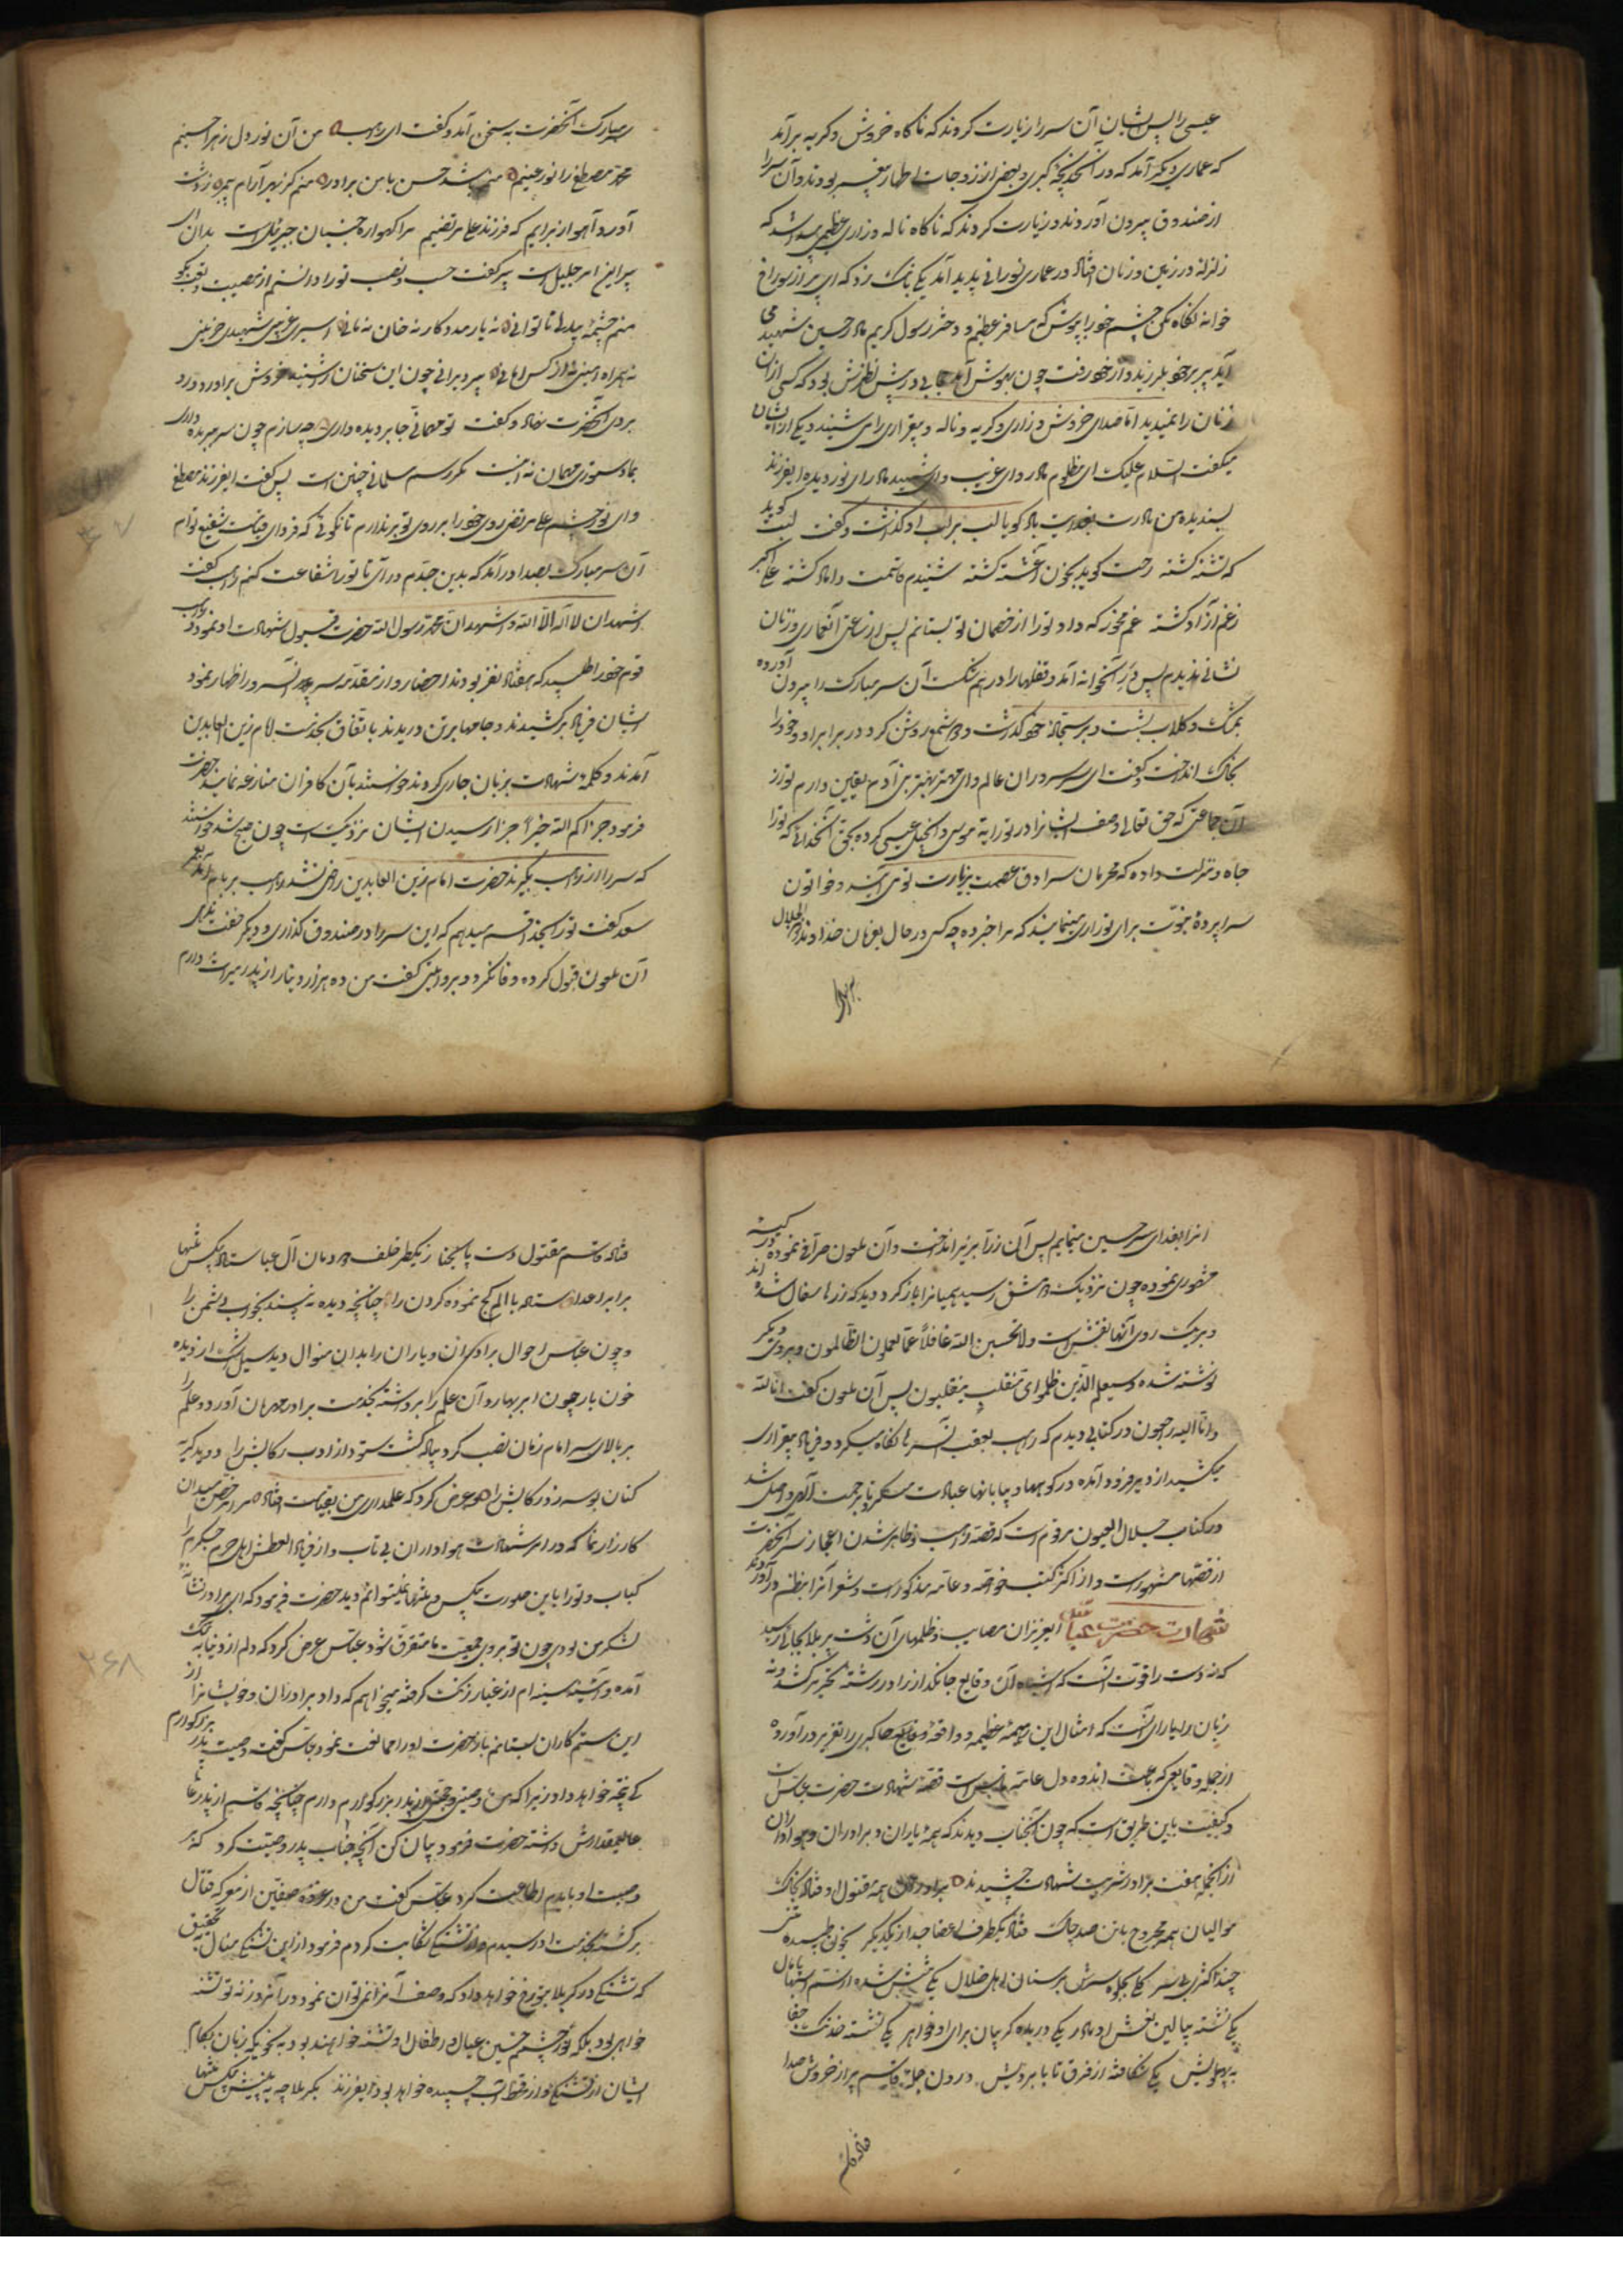 عیسی را پس ایشان آن سر را زیارت کردند که ناگاه خروش و گریه برآمد
که عماری دیگر آمد که در آن خدیجه کبری و بعضی از زوجات اطهار پیغمبر بودند و آن سر را
از صندوق بیرون آوردند و زیارت کردند که ناگاه ناله و زاری عظیمی شد که
زلزله در زمین و زمان افتاد و عماری نورانی پدید آمد یکی بانگ زد که ای پیر از سوراخ
خوانه نگاه مکن چشم خود را بپوش که مسافر عظیم و دختر رسول کریم مادر حسین شهید می
آید پیر بر خود بلرزید و از خود رفت چون بهوش آمد حجابی در پیش نظرش بود که کسی از آن
زنان را نمیدید اما صدای خروش و زاری و گریه و ناله و بیقراری را می شنید و یکی از ایشان
میگفت السلام علیک ای مظلوم مادر وای غریب وای شهید مادر ای نور دیده ای فرزند
پسندیده من مادرت بفدایت باد گویا لب بر لب او گذاشت و گفت لبت گوید
که تشنه کشته رخت گوید بخون آغشته کشته شنیدم قاسمت داماد کشته علی اکبر
ز غم آزاد کشته غم مخور که داد تو را از خصمان تو بستانم پس از ساعتی از عماری و زنان
نشانی ندیدم پس در آنخوانه آمد و قفلها را در هم شکست آن سر مبارک را بیرون آورده
بمشک و گلاب بشست و بر سجاده خود گذاشت و شمع روشن کرد در برابر او و خود را
بخاک انداخت و گفت ای سر سروران عالم وای مهتر بهتر بنی آدم یقین دارم تو از
آن جماعتی که حق تعالی وصف ایشانرا در توراة موسی و انجیل عیسی کرده بحق آنخدائی که تو را
جاه و منزلت داده که محرمان سرادق عصمت بزیارت تو می آیند و خواتون
سراپرده نبوت برای تو زاری مینمایند که مرا خبر ده چه کسی در حال بفرمان خداوند ذو الجلال
سر مبارک آنحضرت به سخن آمد و گفت ای راهب من آن نور دل زهرا جبینم
محمد مصطفی را نور عینم منم شد حسن با من برادر منم کز بهر آرام پیمبر ز دشت
آورد آهو از برایم که فرزند علی مرتضیم مرا گهواره جنبان جبرئیل است بدان ای
پیر این امر جلیل است پیر گفت حسب و نسب تو را دانستم از مصیبت خود بگو
منم چشمه بیدلی ناتوانی نه یار و مددکار نه خان نه مانی اسیری غریبی شهیدی حزینی
نه همراه امینی نه از کس امانی پیر دیرانی چون این سخنان را شنید خروش برآورد و رو
بروی آنحضرت نهاد و گفت تو مهمانی جا بر دیده داری چه سازم چون سر ببریده داری
بما دستوری مهمان نه اینست مگر رسم مسلمانی چنین است پس گفت ای فرزند مصطفی
وای نور چشم علی مرتضی روی خود را بر روی تو برندارم تا نگوئی که فردای قیامت شفیع توام
آن سر مبارک بصدا درآمد که بدین جدم درآی تا تو را شفاعت کنم راهب گفت
اشهد ان لا اله الا الله و اشهد ان محمد رسول الله حضرت قبول شهادت او نمود و راهب
قوم خود را طلبید که هفتاد نفر بودند احضار و از مقدمه سر آن سرور اظهار نمود
ایشان فریاد برکشیدند و جامها بر تن دریدند باتفاق بخدمت امام زین العابدین
آمدند و کلمه شهادت بر زبان جاری کردند خواستند با آن کافران منازعه نمایند حضرت
فرمود جزاکم الله خیرا جزا رسیدن ایشان نزدیک است چون صبح شد خواستند
که سر را از راهب بگیرند حضرت امام زین العابدین راضی نشد راهب بر بام آمد بعمر
سعد گفت تو را بخدا قسم میدهم که این سر را در صندوق نگذاری و دیگر خفت ندهی
آن ملعون قبول کرده وفا نکرد و بروایتی گفت من ده هزار دینار از پدر میراث دارم
انرا بفدای سر حسین مینمایم پس آن زر را بزیر انداخت و آن ملعون صرافی نموده در کیسه
حضوری نموده چون نزدیک دمشق رسید همیانرا باز کرد دید که زرها سفال شده اند
و بر یک روی آنها نقش است ولا تحسبن الله غافلا عما یعمل الظالمون و بر روی دیگر
نوشته شده وسیعلم الذین ظلموا ای منقلب ینقلبون پس آن ملعون گفت انا لله
و انا الیه راجعون در کتابی دیدم که راهب بعقب آن سرها نگاه میکرد و فریاد بیقراری
میکشید از دیر فرود آمده در کوهها و بیابانها عبادت میکرد تا برحمت الهی واصل شد
در کتاب جلال العیون مرقوم است که قصه راهب و ظاهر شدن اعجاز سر آنحضرت
از قصهای مشهور است و از اکثر کتب خاصه و عامه مذکور است و شعرا آنرا بنظم درآوردند
شهادت حضرت عباس ای عزیزان مصایب و ظلمهای آن دشت پر بلا بجائی رسید
که نه دست را قوت آنست که آن وقایع جانگداز را در رشته تحریر کشد و نه
زبان را یارای آنست که امثال این داهیه عظیمه و واقعه کبری را تقریر درآورده
از جمله وقایعی که باعث اندوه دل عامه ناس است قصه شهادت حضرت عباس است
و کیفیت باین طریق است که چون آنجناب دیدند که همه یاران و برادران و هواداران
از آنجمله هفت برادر شربت شهادت چشیدند برادران همه مقتول و افتاده بخاک
موالیان همه مجروح با تن صد چاک فتاده یکطرف اعضا جدا از یکدیگر بخون طپیده تن
چند اکثری بی سر یکی بجلوه سرش بر سنان اهل ضلال یکی تنش شده از سم اسبها پامال
یکی نشسته ببالین نعش او مادر یکی دریده گریبان برای او خواهر یکی نشسته خدنگ جفا
به پهلویش یکی شکافته از فرق تا بابرویش درون حجله قاسم پر از خروش صدا
فتاده قاسم
فتاده قاسم مقتول دست پا بحنا ز یکطرف خلف دودمان آل عبا ستاده بیکس تنها
برابر اعدا ستاده با الم کج نموده گردن را چنانچه دیده نه بیند بخواب دشمن را
و چون عباس احوال برادران و یاران را بدان منوال دید سیل اشک از دیده
خون بار چون ابر بهار روان علم را برداشته بخدمت برادر مهربان آورد و علم را
بر بالای سر امام زمان نصب کرد پیاده گشت ستور از ادب رکابش را دوید گریه
کنان بوسه زد رکابش را و عرض کرد که علمداری من بقیامت افتاد مرا مرخص میدان
کارزار نما که در امر شهادت هواداران بی تاب و از فریاد العطش اهل حرم جگرم را
کباب و تو را باین صورت بیکس و تنها نمیتوانم دید حضرت فرمود که ای برادر نشان
لشکر من بودی چون تو بروی جمعیت ما متفرق شود عباس عرض کرد که دلم از دنیا به تنگ
آمده و آئینه سینه ام از غبار زنگ گرفته میخواهم که داد برادران و خویشانرا از
این ستمکاران بستانم باز حضرت او را ممانعت نمود عباس گفت وصیت پدر بزرگوارم
کی نتیجه خواهد داد زیرا که من وصیتی و حقی از پدر بزرگوارم دارم چنانچه قاسم از پدر
عالیمقدارش داشته حضرت فرمود بیان کن آنچه جناب پدر وصیت کرد که هر
وصیت او باید اطاعت کرد عباس گفت من در غزوه صفین از معرکه قتال
برگشته بخدمت او رسیدم و از تشنگی شکایت کردم فرمود از این تشنگی منال بتحقیق
که تشنگی در کربلا بتو رخ خواهد داد که وصف آنرا نمیتوان نمود در آنروز نه تو تشنه
خواهی بود بلکه نور چشمم حسین عیال و اطفال او تشنه خواهند بود به نحویکه زبان بکام
ایشان از تشنگی و از قحط آب چسبیده خواهد بود ای فرزند بکربلا چه به بینیش بیکس تنها
۲۶۷
۲۶۸